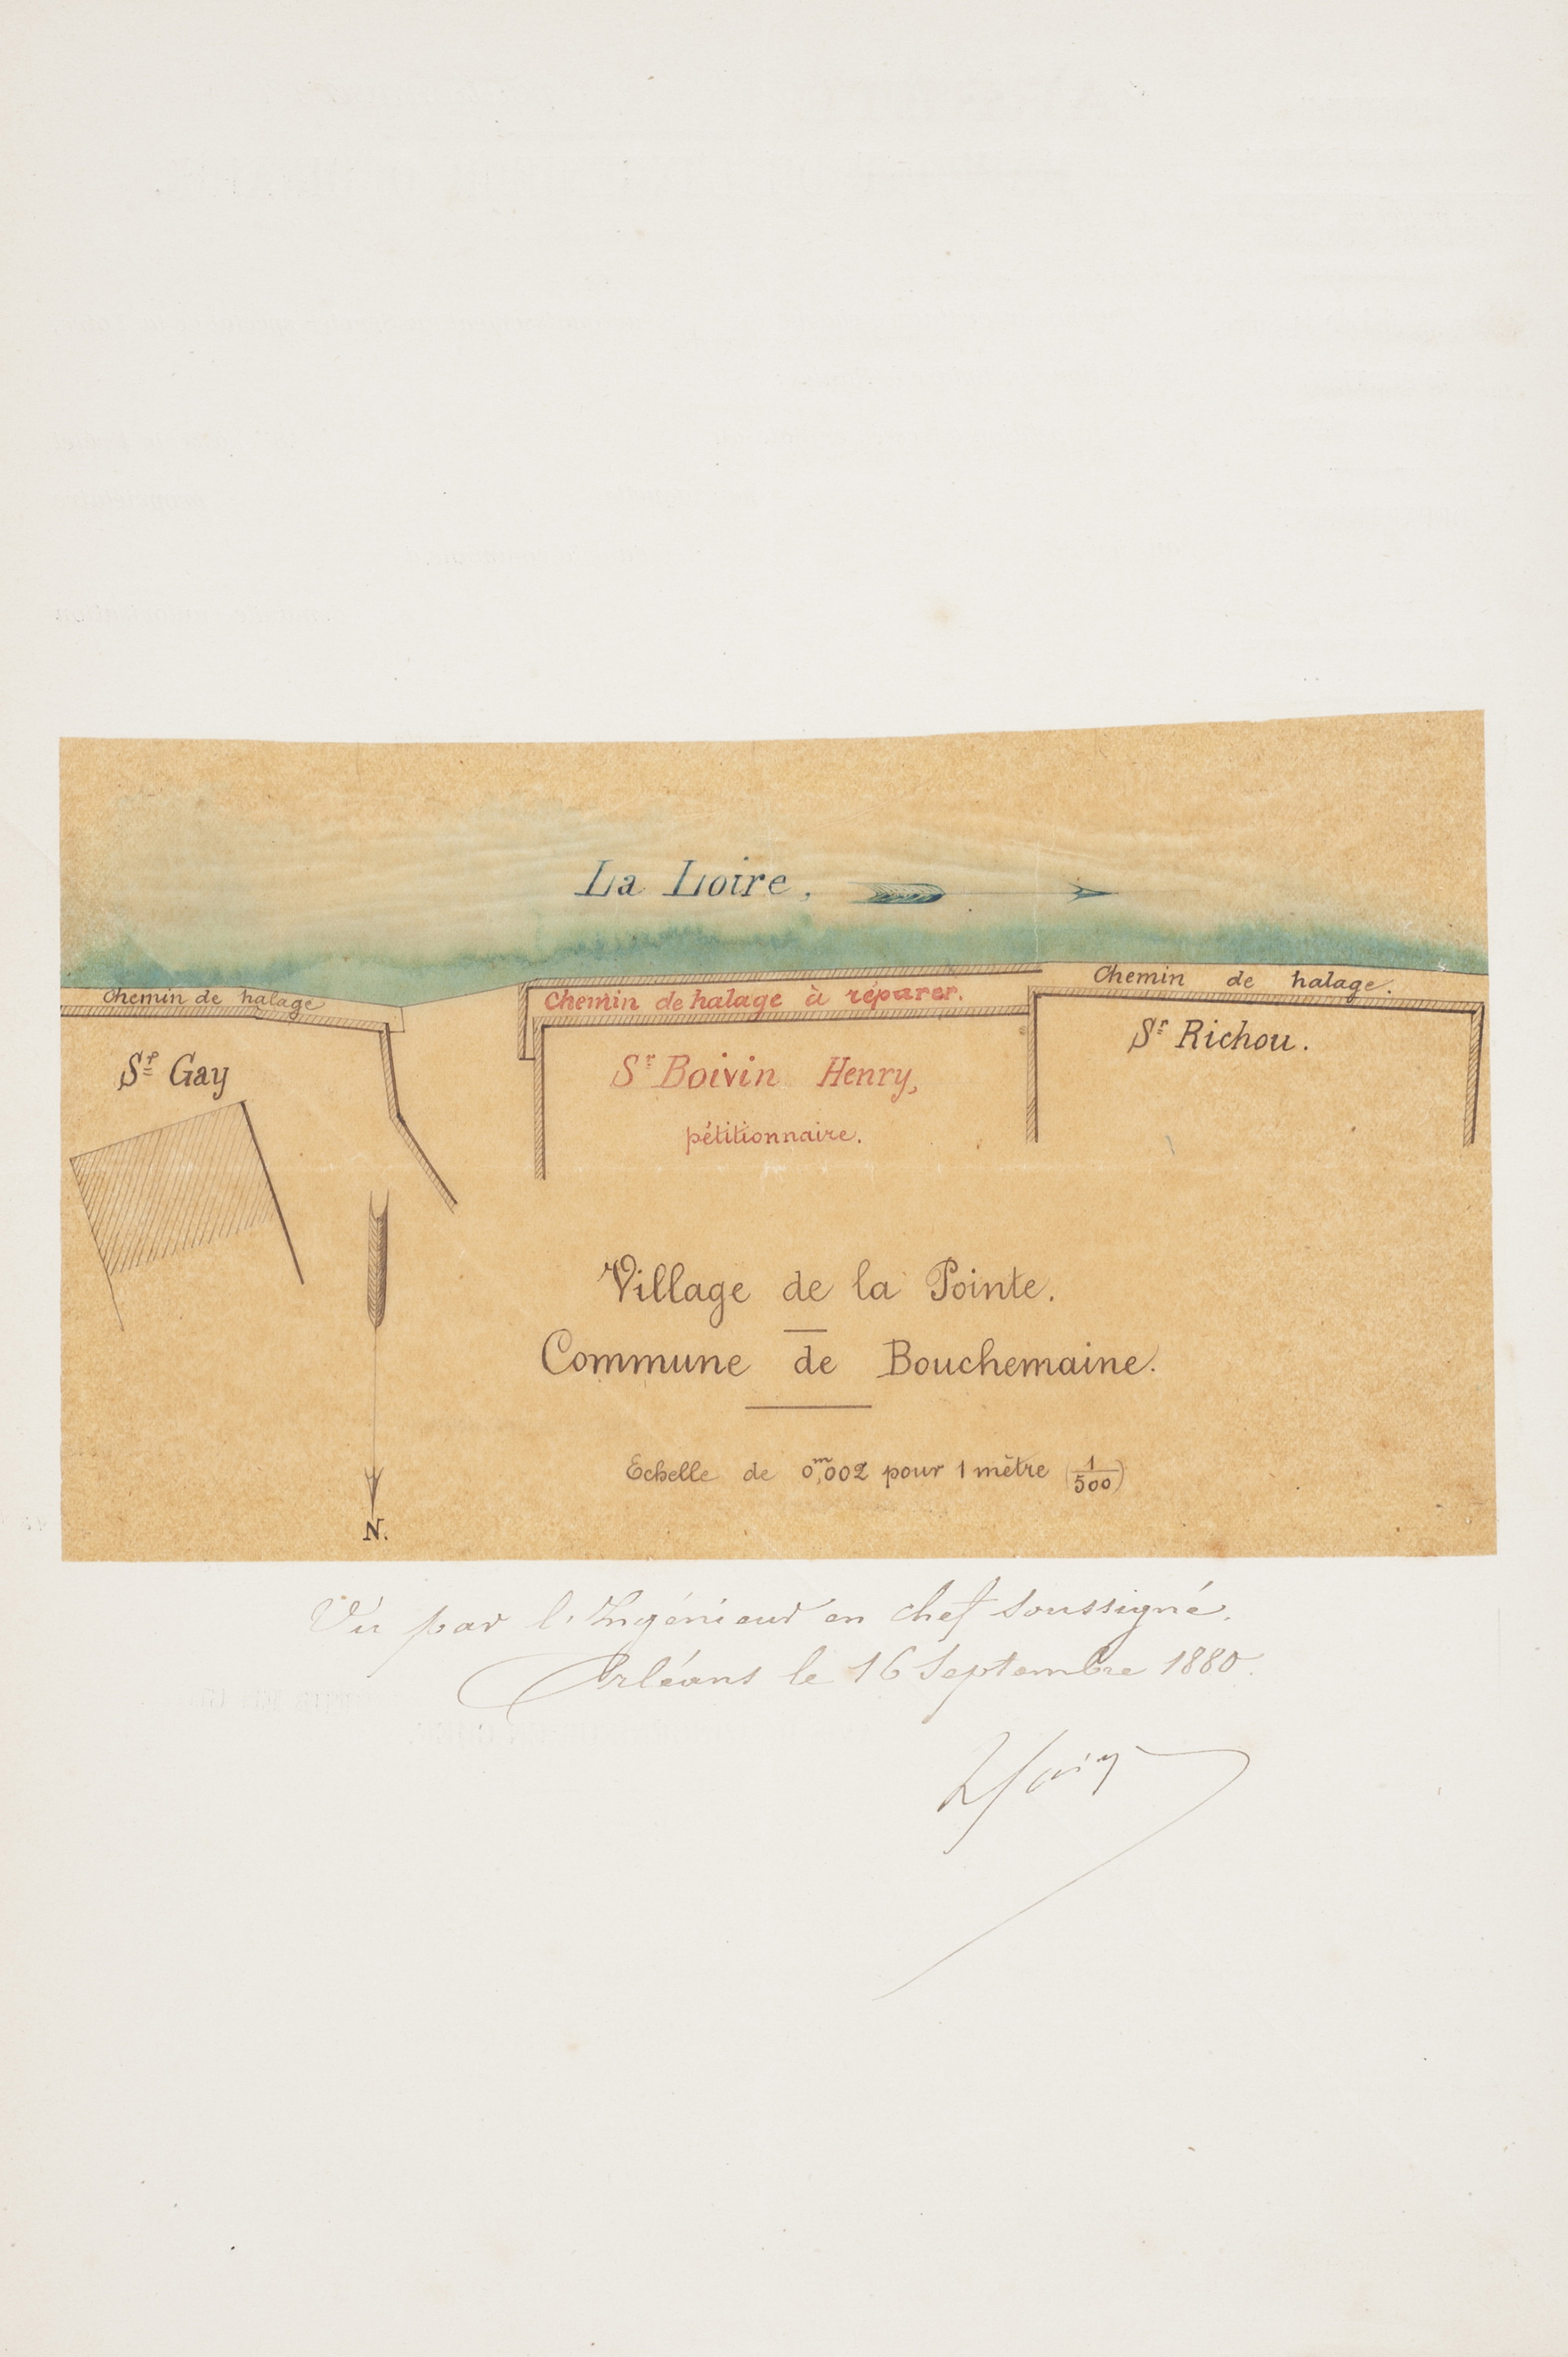 La Loire,
Chemin de halage
Chemin de halage à réparer.
Chemin de halage.
Sr Gay
Sr Boivin Henry,
pétitionnaire.
Sr Richou.
Village de la Pointe.
Commune de Bouchemaine.
Echelle de 0m,002 pour 1 mètre (1/500)
N.
Vu par l'Ingénieur en chef soussigné.
Orléans le 16 Septembre 1880.